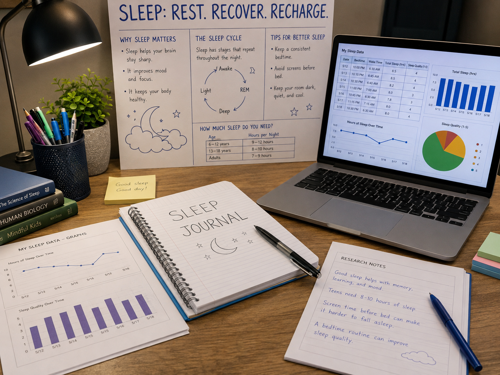 SLEEP: REST. RECOVER. RECHARGE.
WHY SLEEP MATTERS
• Sleep helps your brain
stay sharp.
• It improves mood
and focus.
• It keeps your body
healthy.
THE SLEEP CYCLE
Sleep has stages that repeat
throughout the night.
Awake
Light
REM
Deep
TIPS FOR BETTER SLEEP
• Keep a consistent
bedtime.
• Avoid screens before
bed.
• Keep your room dark,
quiet, and cool.
HOW MUCH SLEEP DO YOU NEED?
Age
Hours per Night
6–12 years
9–12 hours
13–18 years
8–10 hours
Adults
7–9 hours
My Sleep Data
Hours of Sleep Over Time
The Science of Sleep
HUMAN BIOLOGY
Mindful Kids
Good sleep
Good day!
SLEEP
JOURNAL
MY SLEEP DATA - GRAPHS
Hours of Sleep Over Time
Sleep Quality Over Time
RESEARCH NOTES
Good sleep helps with memory,
learning, and mood.
Teens need 8-10 hours of sleep
Screen time before bed can make
it harder to fall asleep.
A bedtime routine can improve
sleep quality.